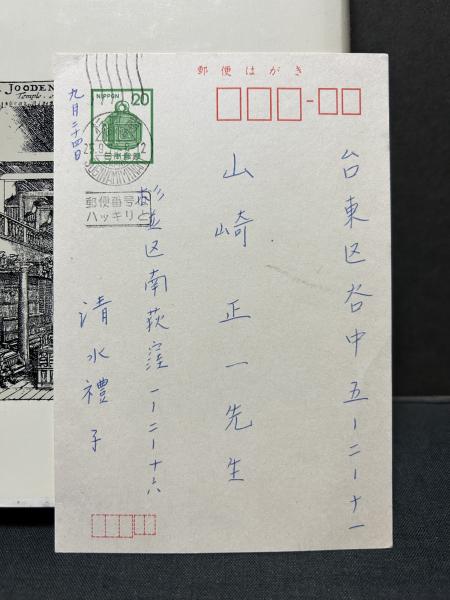 郵便はがき
台東区谷中五ー二ー十一
山崎正一先生
杉並区南荻窪一ー二ー十六
清水禮子
九月二十四日
NIPPON
20
日本郵便
郵便番号は
ハッキリと
JOODEN